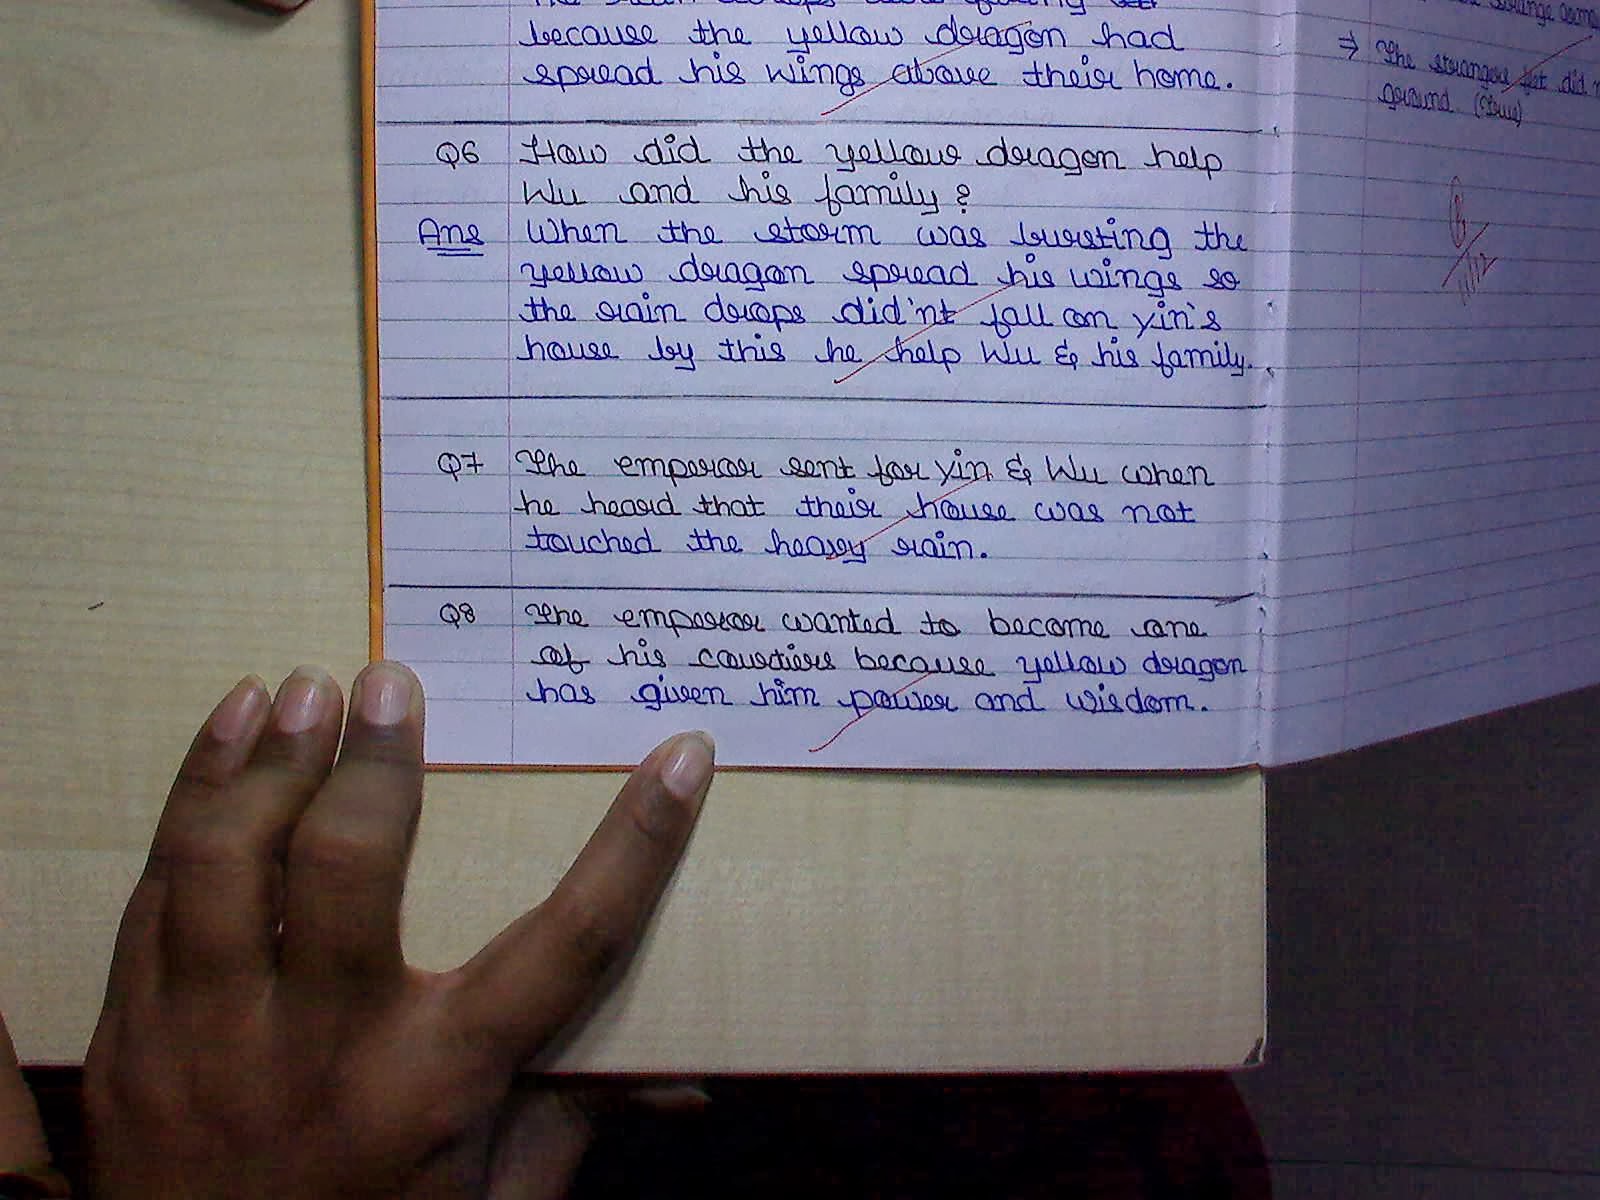 because the yellow dragon had
spread his wings above their home.
Q6 How did the yellow dragon help
Wu and his family?
Ans When the storm was bursting the
yellow dragon spread his wings so
the rain drops did'nt fall on yin's
house by this he help Wu & his family.
Q7 The emperor sent for yin & Wu when
he heard that their house was not
touched the heavy rain.
Q8 The emperor wanted to become one
of his courtiers because yellow dragon
has given him power and wisdom.
strange
⇒ The strangers feet did
ground (True)